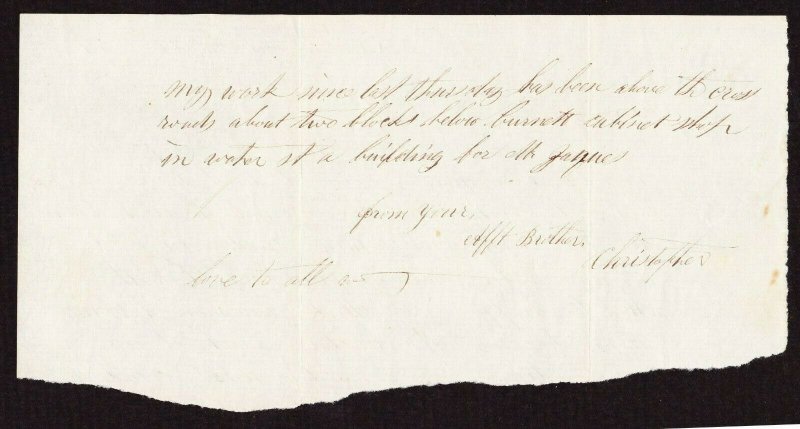 my work since last thursday has been above th cross
roads about two blocks below burnett cabinet shop
in water st a building for Mr Jaques
from your,
Afft Brother,
Christopher
love to all